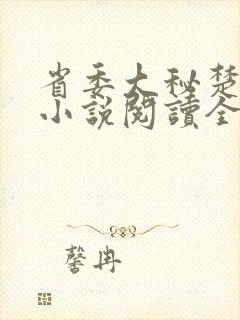 省委大秘楚
小说閱讀全
馨冉